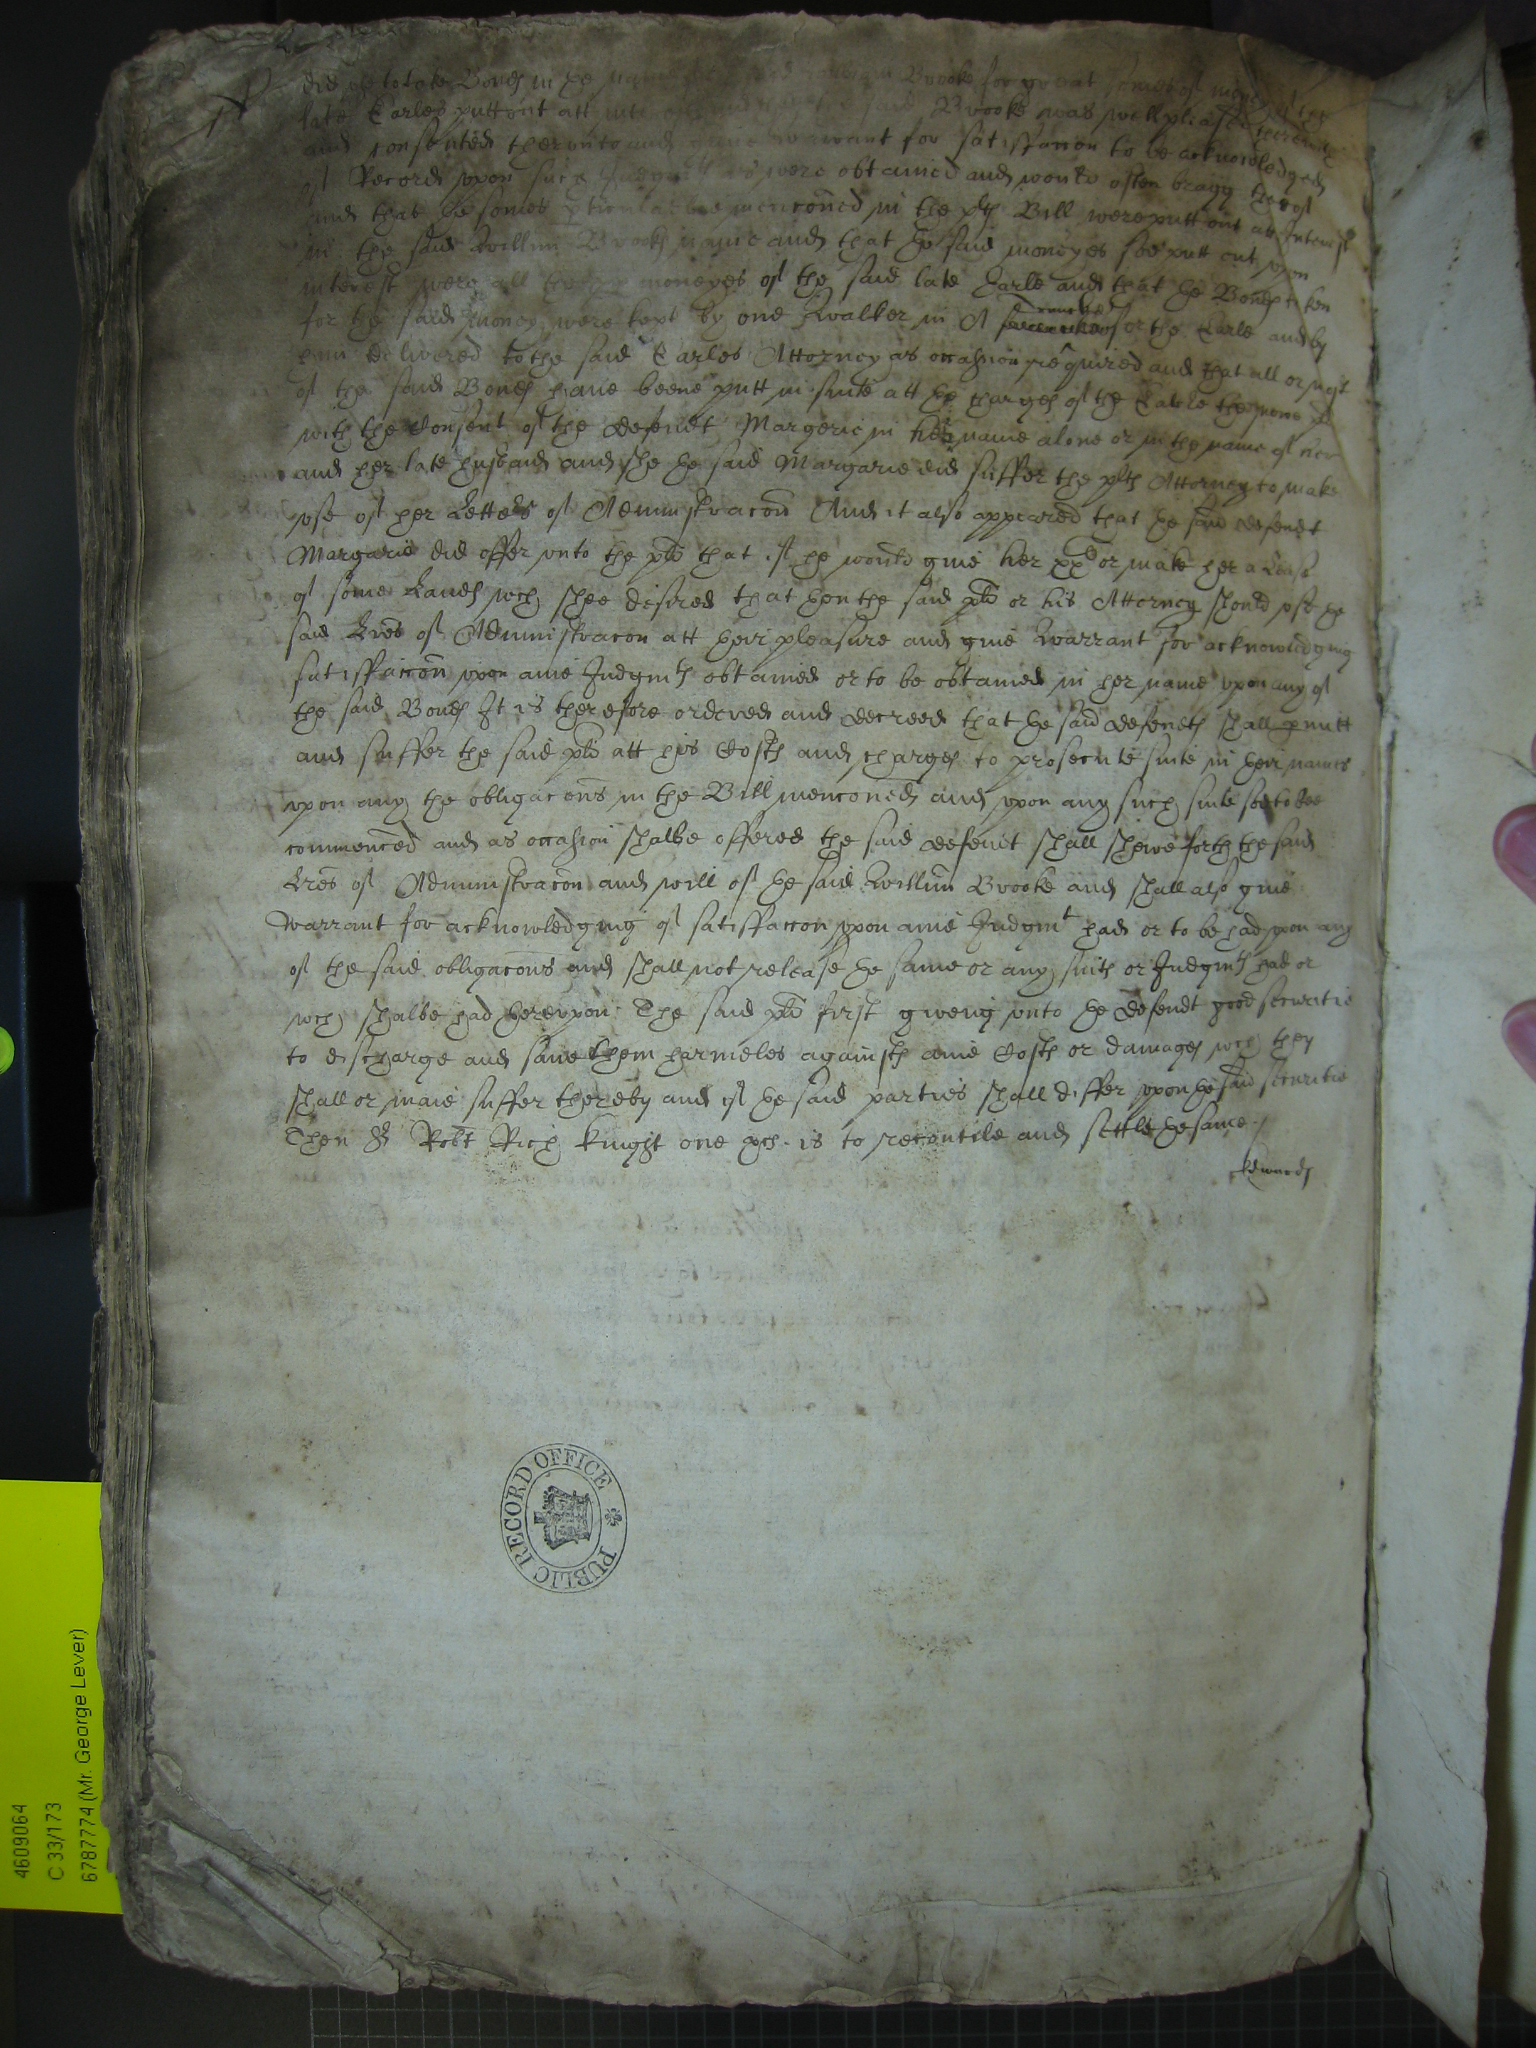 did use to take Bonds in the name of the said William Brooke for great somes of money of the
late Earles putt out att interest and that the said Brooke was well pleased therewith
and consented therunto and gave warrant for satisfaccon to be acknowledged
of Record upon such Judgmts as were obtained and would often bragg thereof
And that the somes pticularlie mencōned in the plts Bill were putt out att Interest
in the said Willm Brooks name and that the said moneyes soe putt out upon
interest were all the moneyes of the said late Earle and that the Bonds taken
for the said money were kept by one Walker in A for the Earle and by
him delivered to the said Earles Attorney as occasion required and that all or most
of the said Bonds have beene putt in suite att the charges of the Earle the same
with the Consent of the defendt Margerie in her name alone or in the name of her
and her late husband and she the said Margarie did suffer the plts Attorney to make
use of her Letters of Administracōn And it also appeared that the said defendt
Margarie did offer unto the plt that if he would give her xxli or make her a Lease
of some Lands wch shee desired that then the said plt or his Attorney should use the
said Lres of Administracon att their pleasure and give Warrant for acknowledging
satisfaccōn upon anie Judgmts obtained or to be obtained in her name upon any of
the said Bonds It is therefore ordered and decreed that the said defendts shall pmitt
and suffer the said plt att his Costs and charges to prosecute suite in their names
upon any the obligacōns in the Bill menconed and upon any such suite soe to bee
commenced and as occasion shalbe offered the said defendt shall shewe forth the said
Lres of Administracōn and will of the said Willm Brooke and shall also give
warrant for acknowledging of satisfaccon upon anie Judgmt had or to be had upon any
of the said obligacōns and shall not release the same or any suits or Judgmts had or
wch shalbe had thereupon The said plt first giveing unto the defendt good securitie
to discharge and save them harmeles against anie Costs or damages wch they
shall or maie suffer thereby and if the said parties shall differ upon the said securitie
Then Sr Robt Rich knight one &c. is to reconcile and settle the same./
Edwards
PUBLIC RECORD OFFICE
4609064
C 33/173
6787774 (Mr. George Lever)